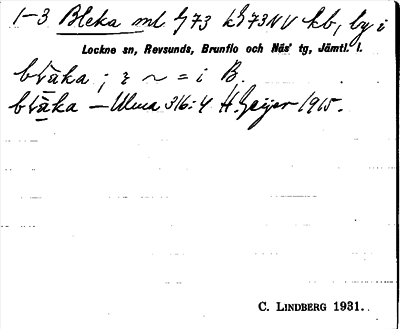 1-3 Bleka ml G 73 kG 73 NV kb, by i
Lockne sn, Revsunds, Brunflo och Näs' tg, Jämtl. l.
blǟka ; ~ = i B.
blä̱ka — Ulma 316:4 H. Geijer 1915.
C. LINDBERG 1931.